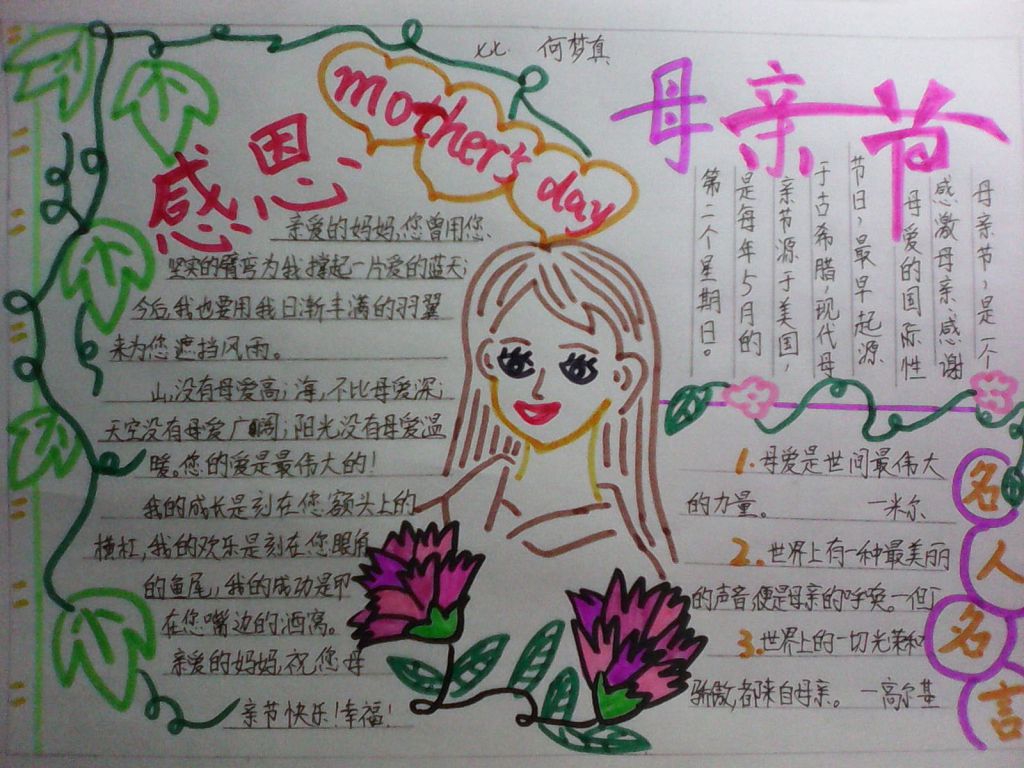 xx. 何梦真
mother's day
感恩
亲爱的妈妈,您曾用您
坚实的臂弯为我撑起一片爱的蓝天;
今后,我也要用我日渐丰满的羽翼
来为您遮挡风雨。
山,没有母爱高;海,不比母爱深;
天空没有母爱广阔;阳光没有母爱温
暖。您的爱是最伟大的!
我的成长是刻在您额头上的
横杠,我的欢乐是刻在您眼角
的鱼尾,我的成功是印
在您嘴边的酒窝。
亲爱的妈妈,祝您母
亲节快乐!幸福!
母亲节
母亲节,是一个
感激母亲、感谢
母爱的国际性
节日,最早起源
于古希腊,现代母
亲节源于美国,
是每年5月的
第二个星期日。
名人名言
1.母爱是世间最伟大
的力量。 —米尔
2.世界上有一种最美丽
的声音,便是母亲的呼唤。—但丁
3.世界上的一切光荣和
骄傲,都来自母亲。 —高尔基